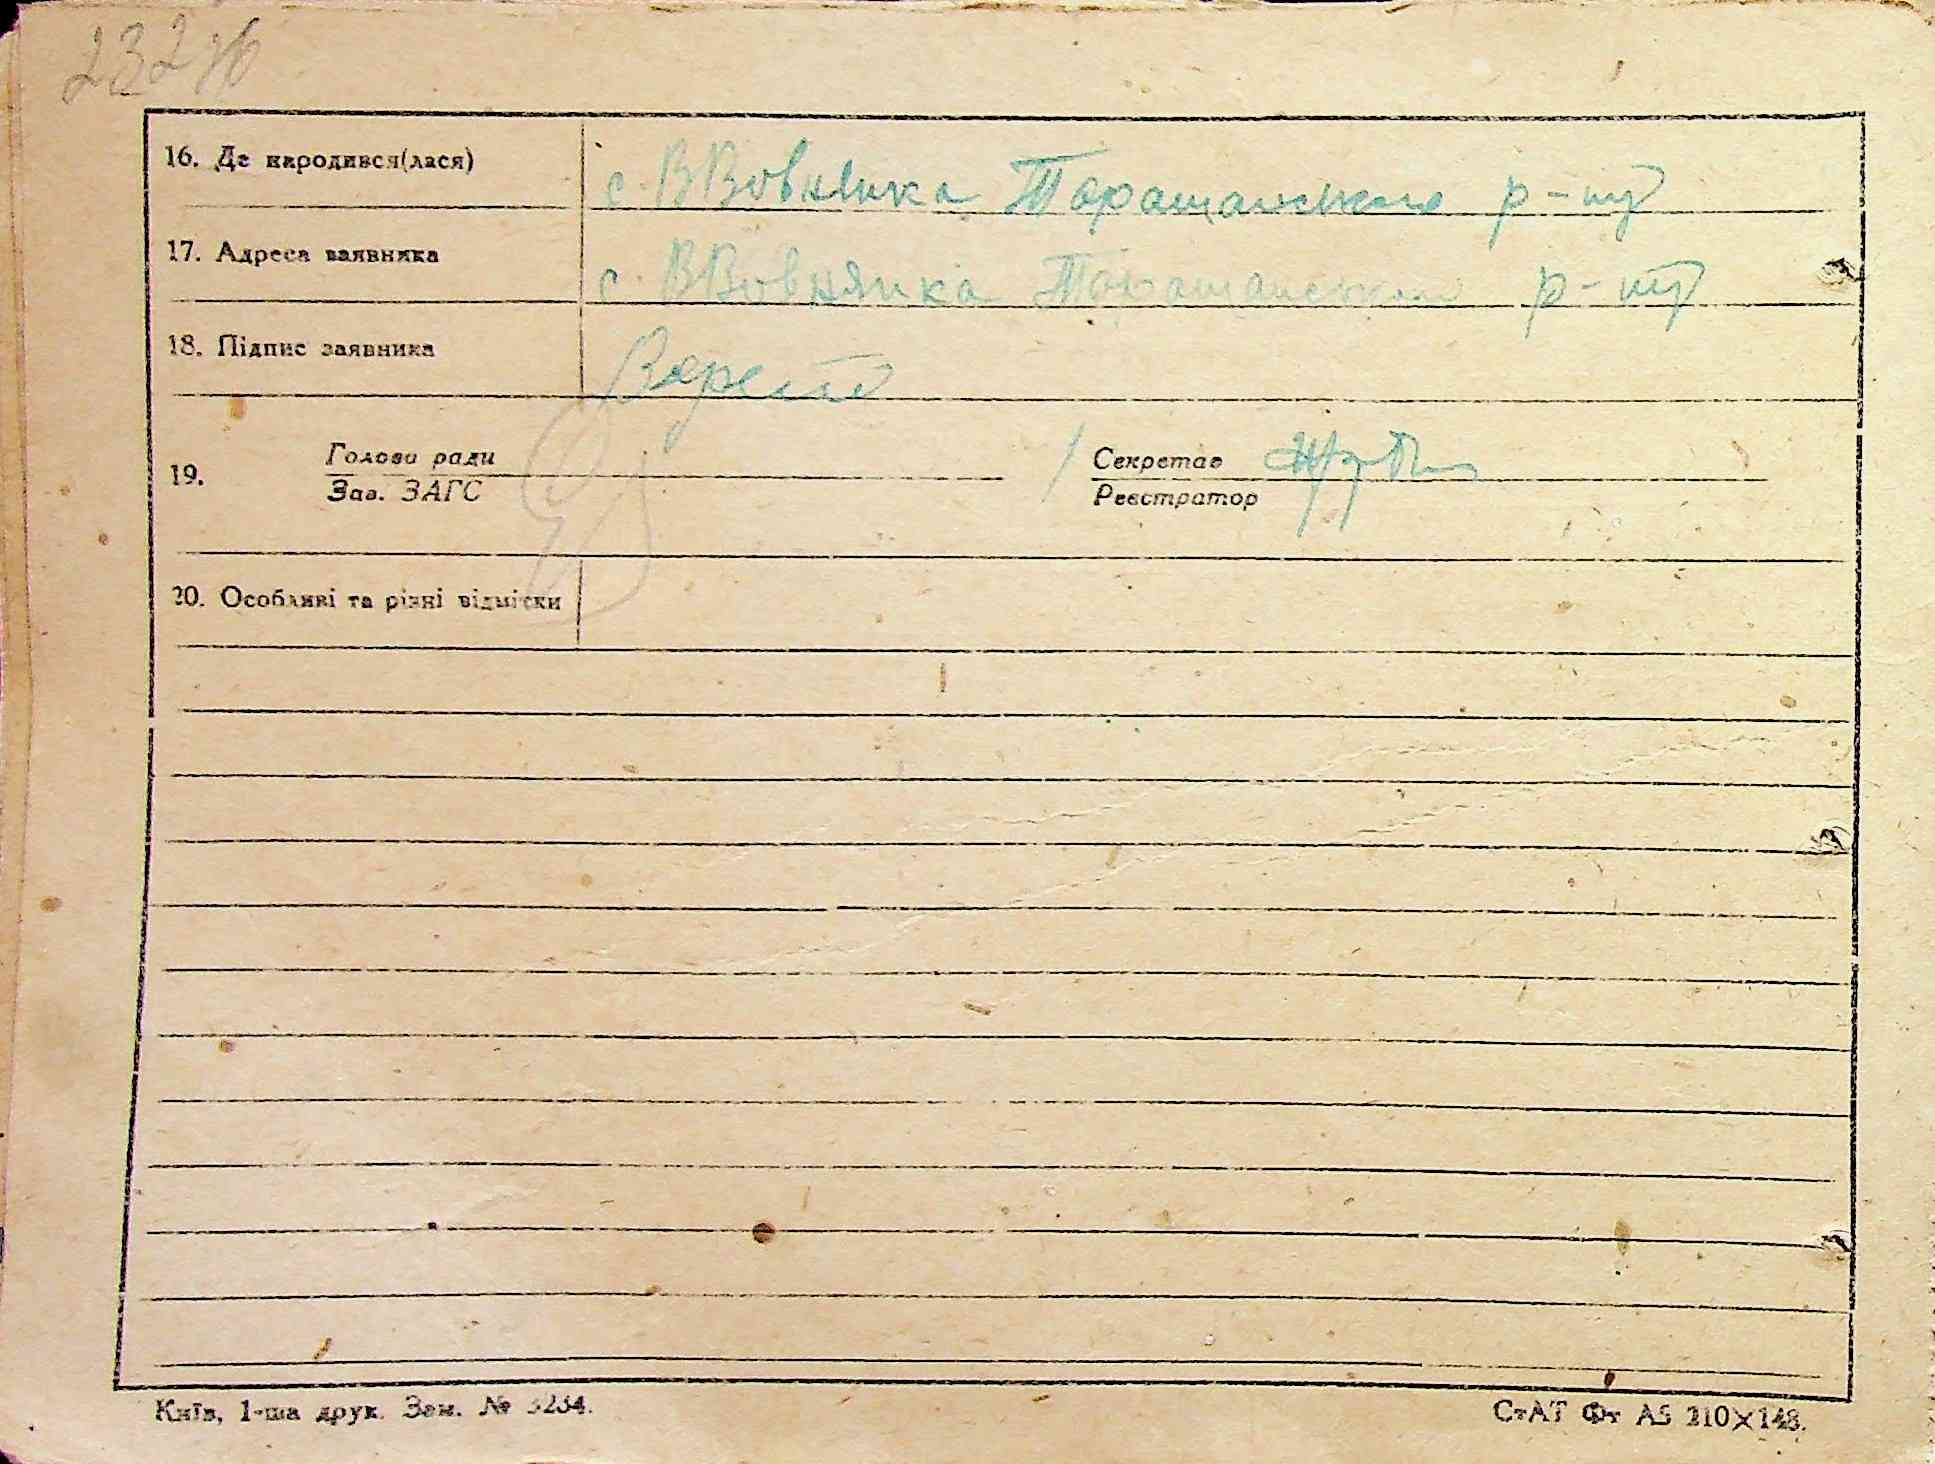 232
16. Де народився(лася) с. ВВовнянка Таращанського р-ну
17. Адреса заявника с. ВВовнянка Таращанського р-ну
18. Підпис заявника
19. Голова ради Секретар
Зав. ЗАГС Реєстратор
20. Особливі та різні відмітки
Київ, 1-ша друк. Зам. № 3234. СтАТ Фт А5 210×148.